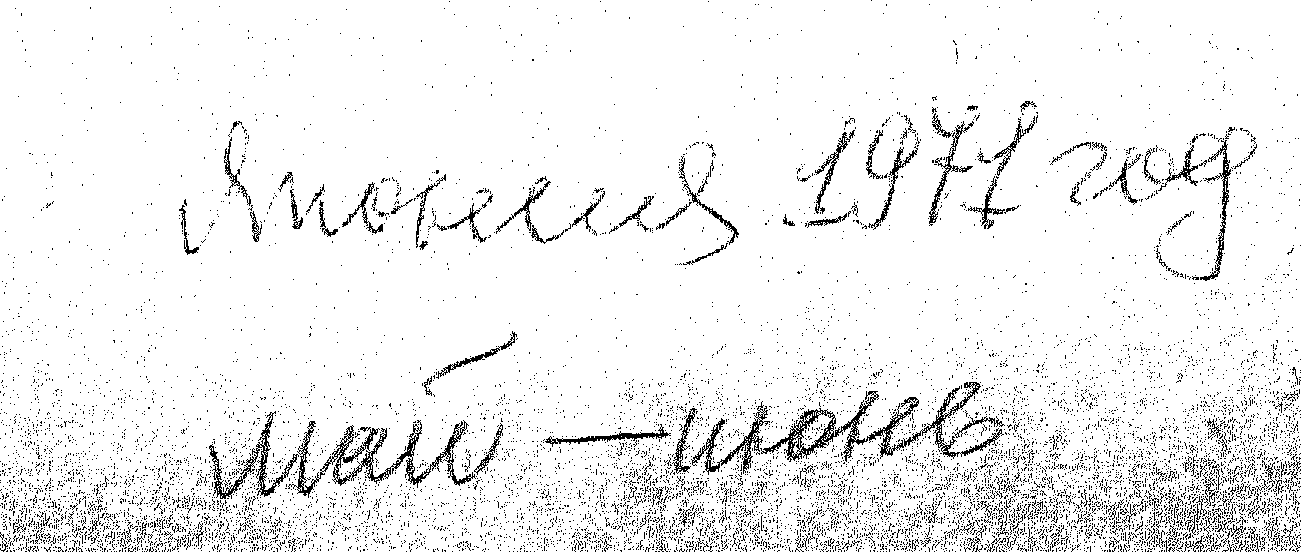 Япония 1971 год
май — июнь